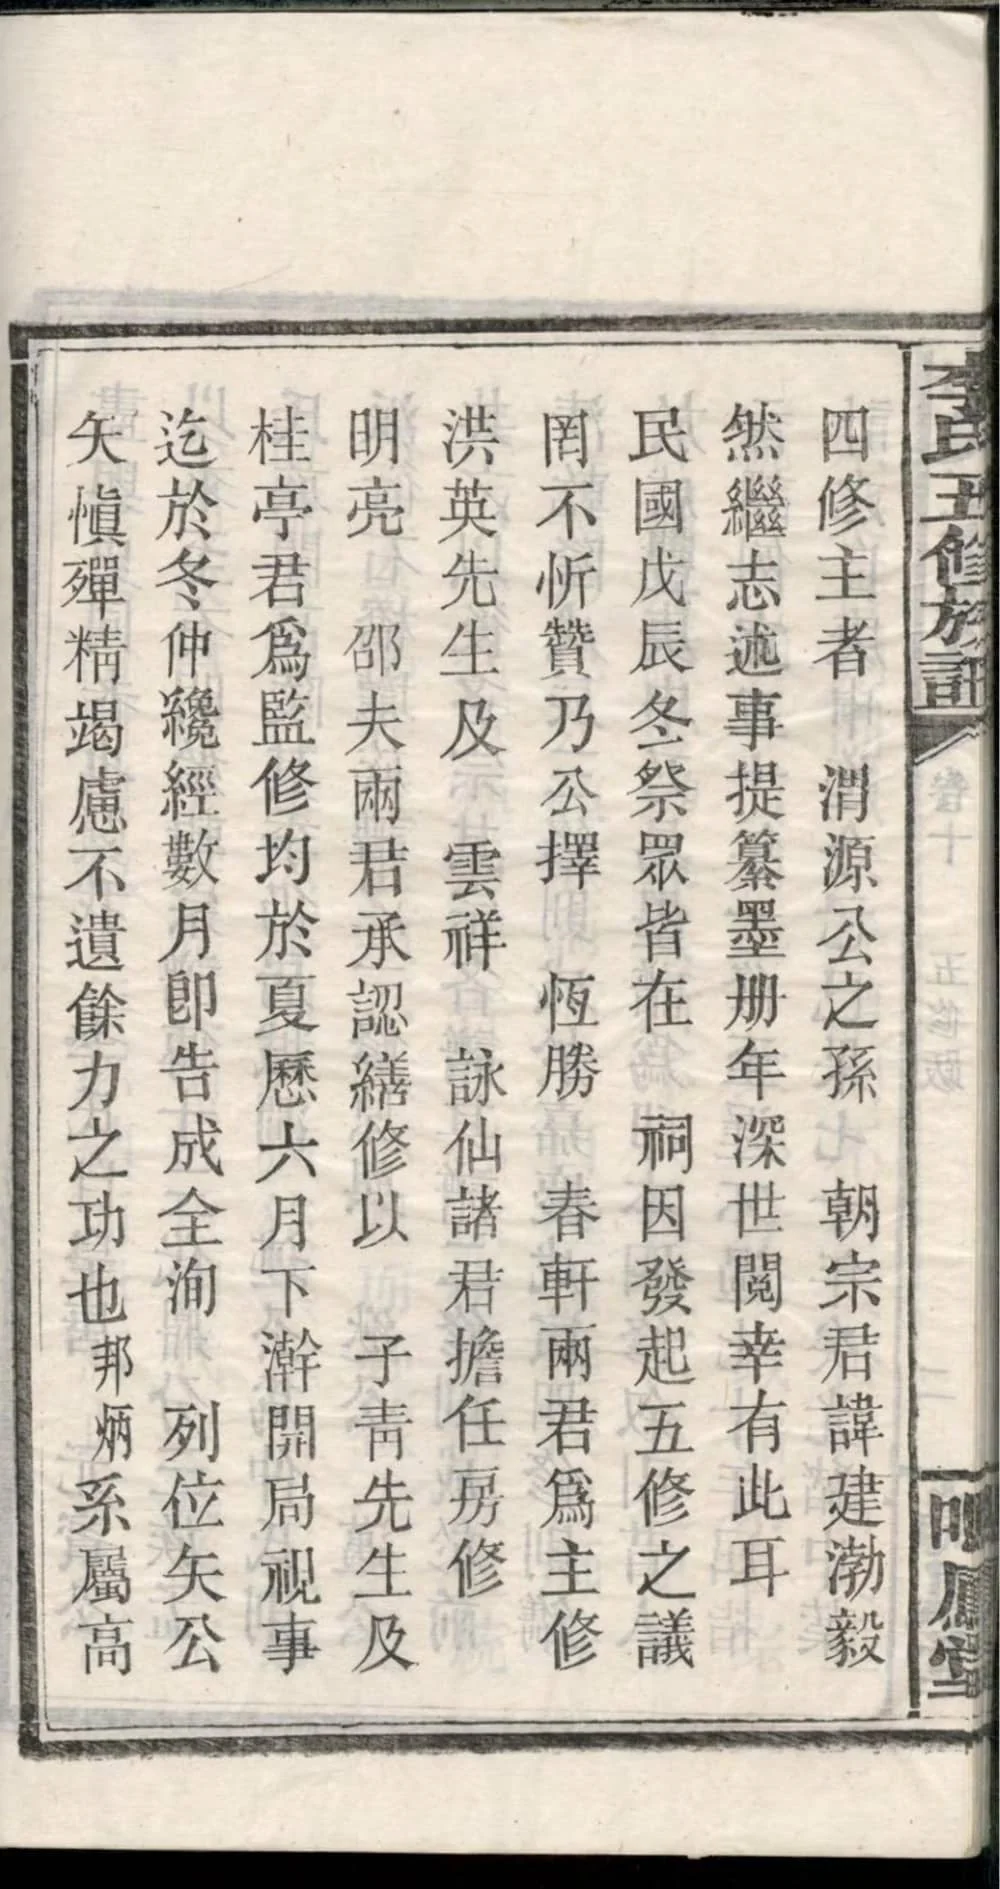 李氏五修族譜
卷十
五修
二
鳳堂
四修主者　渭源公之孫　朝宗君諱建渤毅
然繼志述事提纂墨册年深世閱幸有此耳
民國戊辰冬祭眾皆在　祠因發起五修之議
罔不忻贊乃公擇　恆勝　春軒兩君爲主修
洪英先生及　雲祥　詠仙諸君擔任房修
明亮　邵夫兩君承認繕修以　子靑先生及
桂亭君爲監修均於夏厯六月下澣開局視事
迄於冬仲纔經數月卽告成全洵　列位矢公
矢愼殫精竭慮不遺餘力之功也邦炳系屬高